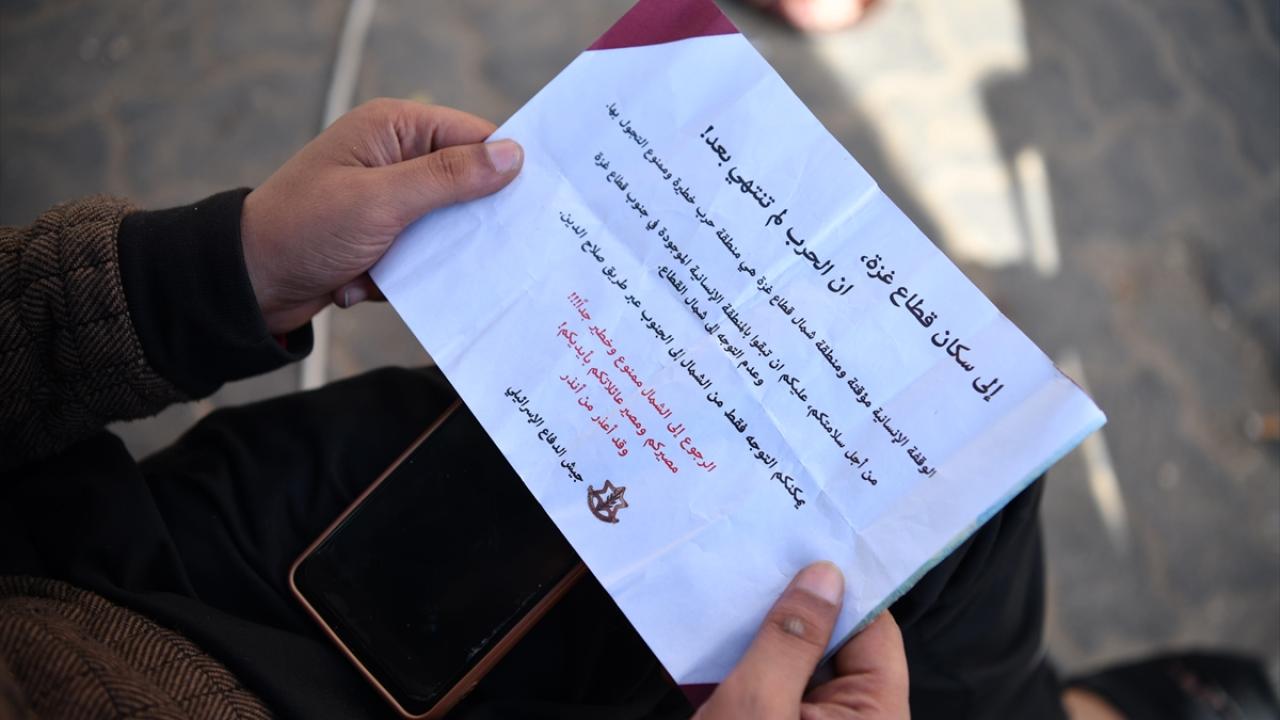 إلى سكان قطاع غزة،
ان الحرب لم تنتهي بعد!
الوقفة الإنسانية مؤقتة ومنطقة شمال قطاع غزة هي منطقة حرب خطيرة وممنوع التجول بها.
من أجل سلامتكم، عليكم ان تبقوا بالمنطقة الإنسانية الموجودة في جنوب قطاع غزة
وعدم التوجه الى شمال القطاع.
يمكنكم التوجه فقط من الشمال إلى الجنوب عبر طريق صلاح الدين.
الرجوع إلى الشمال ممنوع وخطير جدًا!!!
مصيركم ومصير عائلاتكم بأيديكم!
وقد أعذر من أنذر
جيش الدفاع الإسرائيلي